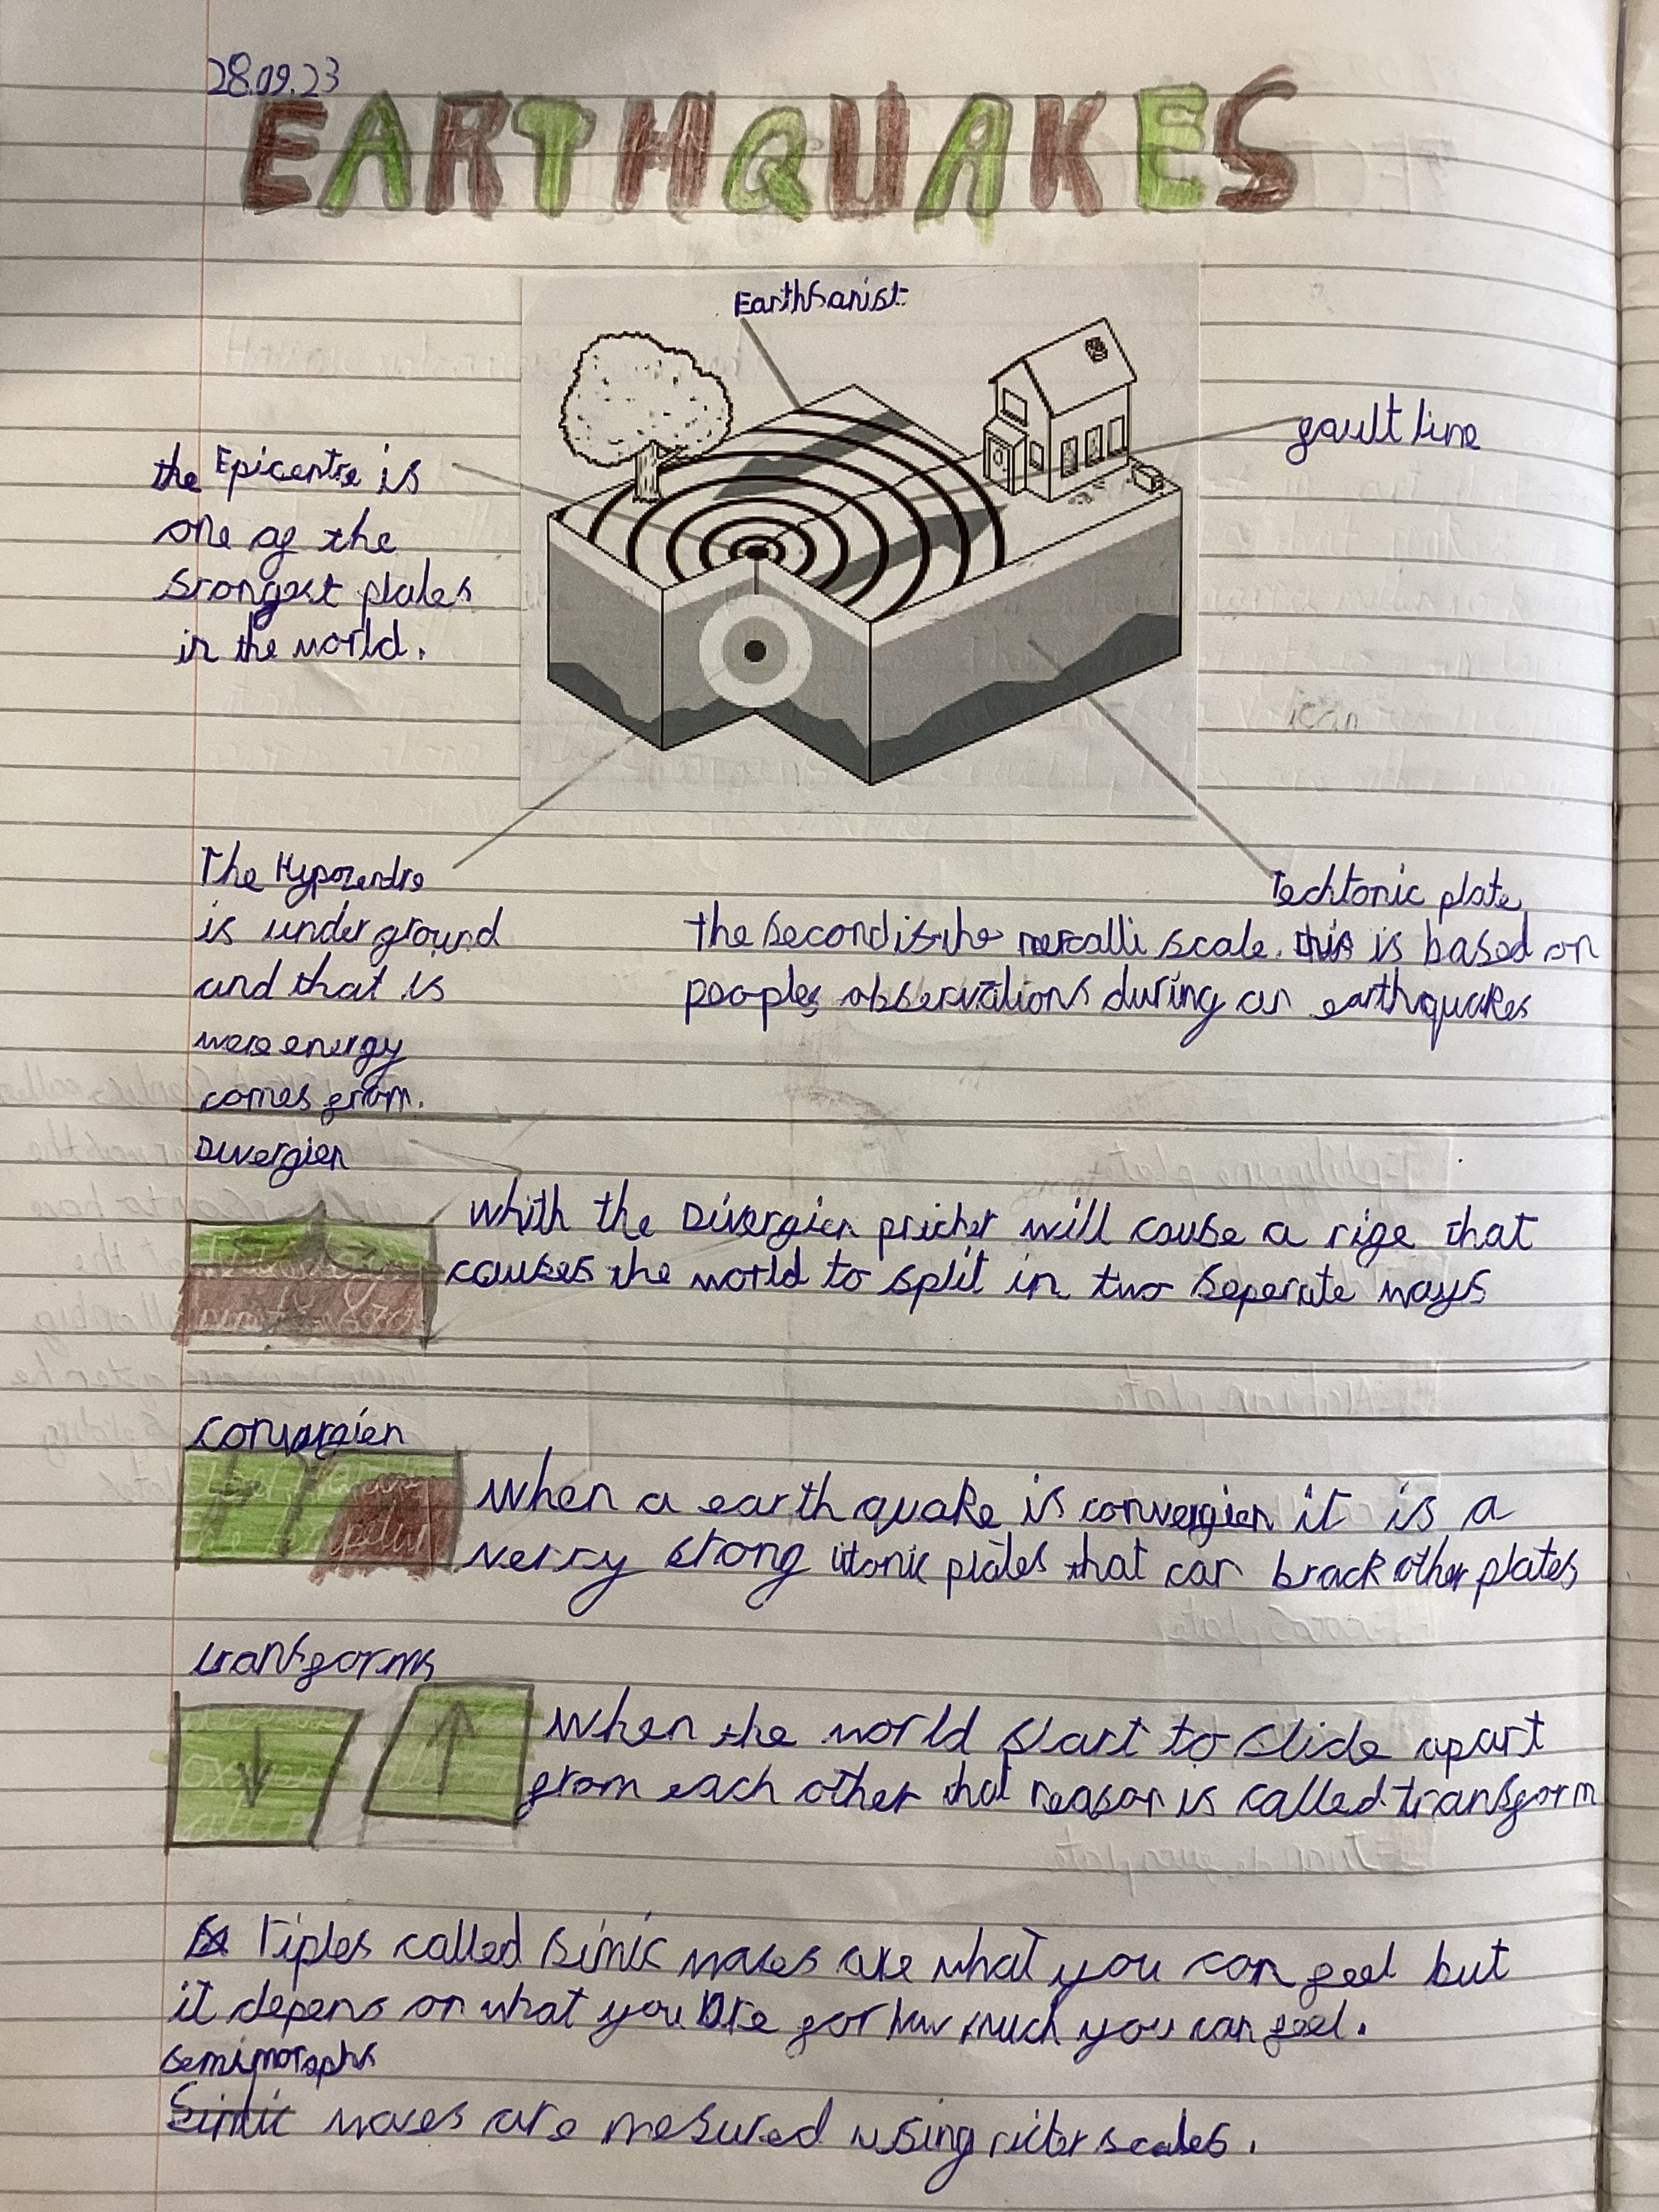 28.09.23
EARTHQUAKES
Earthsarist
the Epicentre is
one of the
srongest plates
in the world.
fault line
The Hypozentre
is underground
and that is
were energy
comes from.
Techtonic plate
the second is the mercalli scale. this is based on
peoples observations during an earthquakes
Divergien
whith the Divergien pricher will couse a rige that
causes the world to split in two seperate ways
convergien
When a earth quake is convergien it is a
verry strong utonic plates that can brack other plates
transforms
When the world start to slide apart
from each other that reason is called transform
riples called simic waves are what you can feel but
it depens on what you are for how much you can feel.
semimoraphs
Simic waves are mesured using ricter scales.